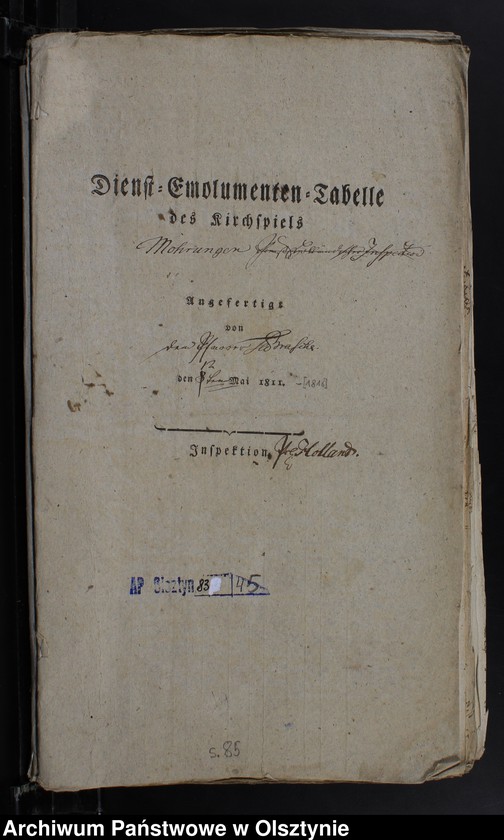 Dienst-Emolumenten-Tabelle
des Kirchspiels
Mohrungen
Angefertigt
von
dem Pfarrer
den 12 Mai 1811. -[1818]
Inspektion Pr Holland.
AP Olsztyn 83 45
s. 85
Archiwum Państwowe w Olsztynie